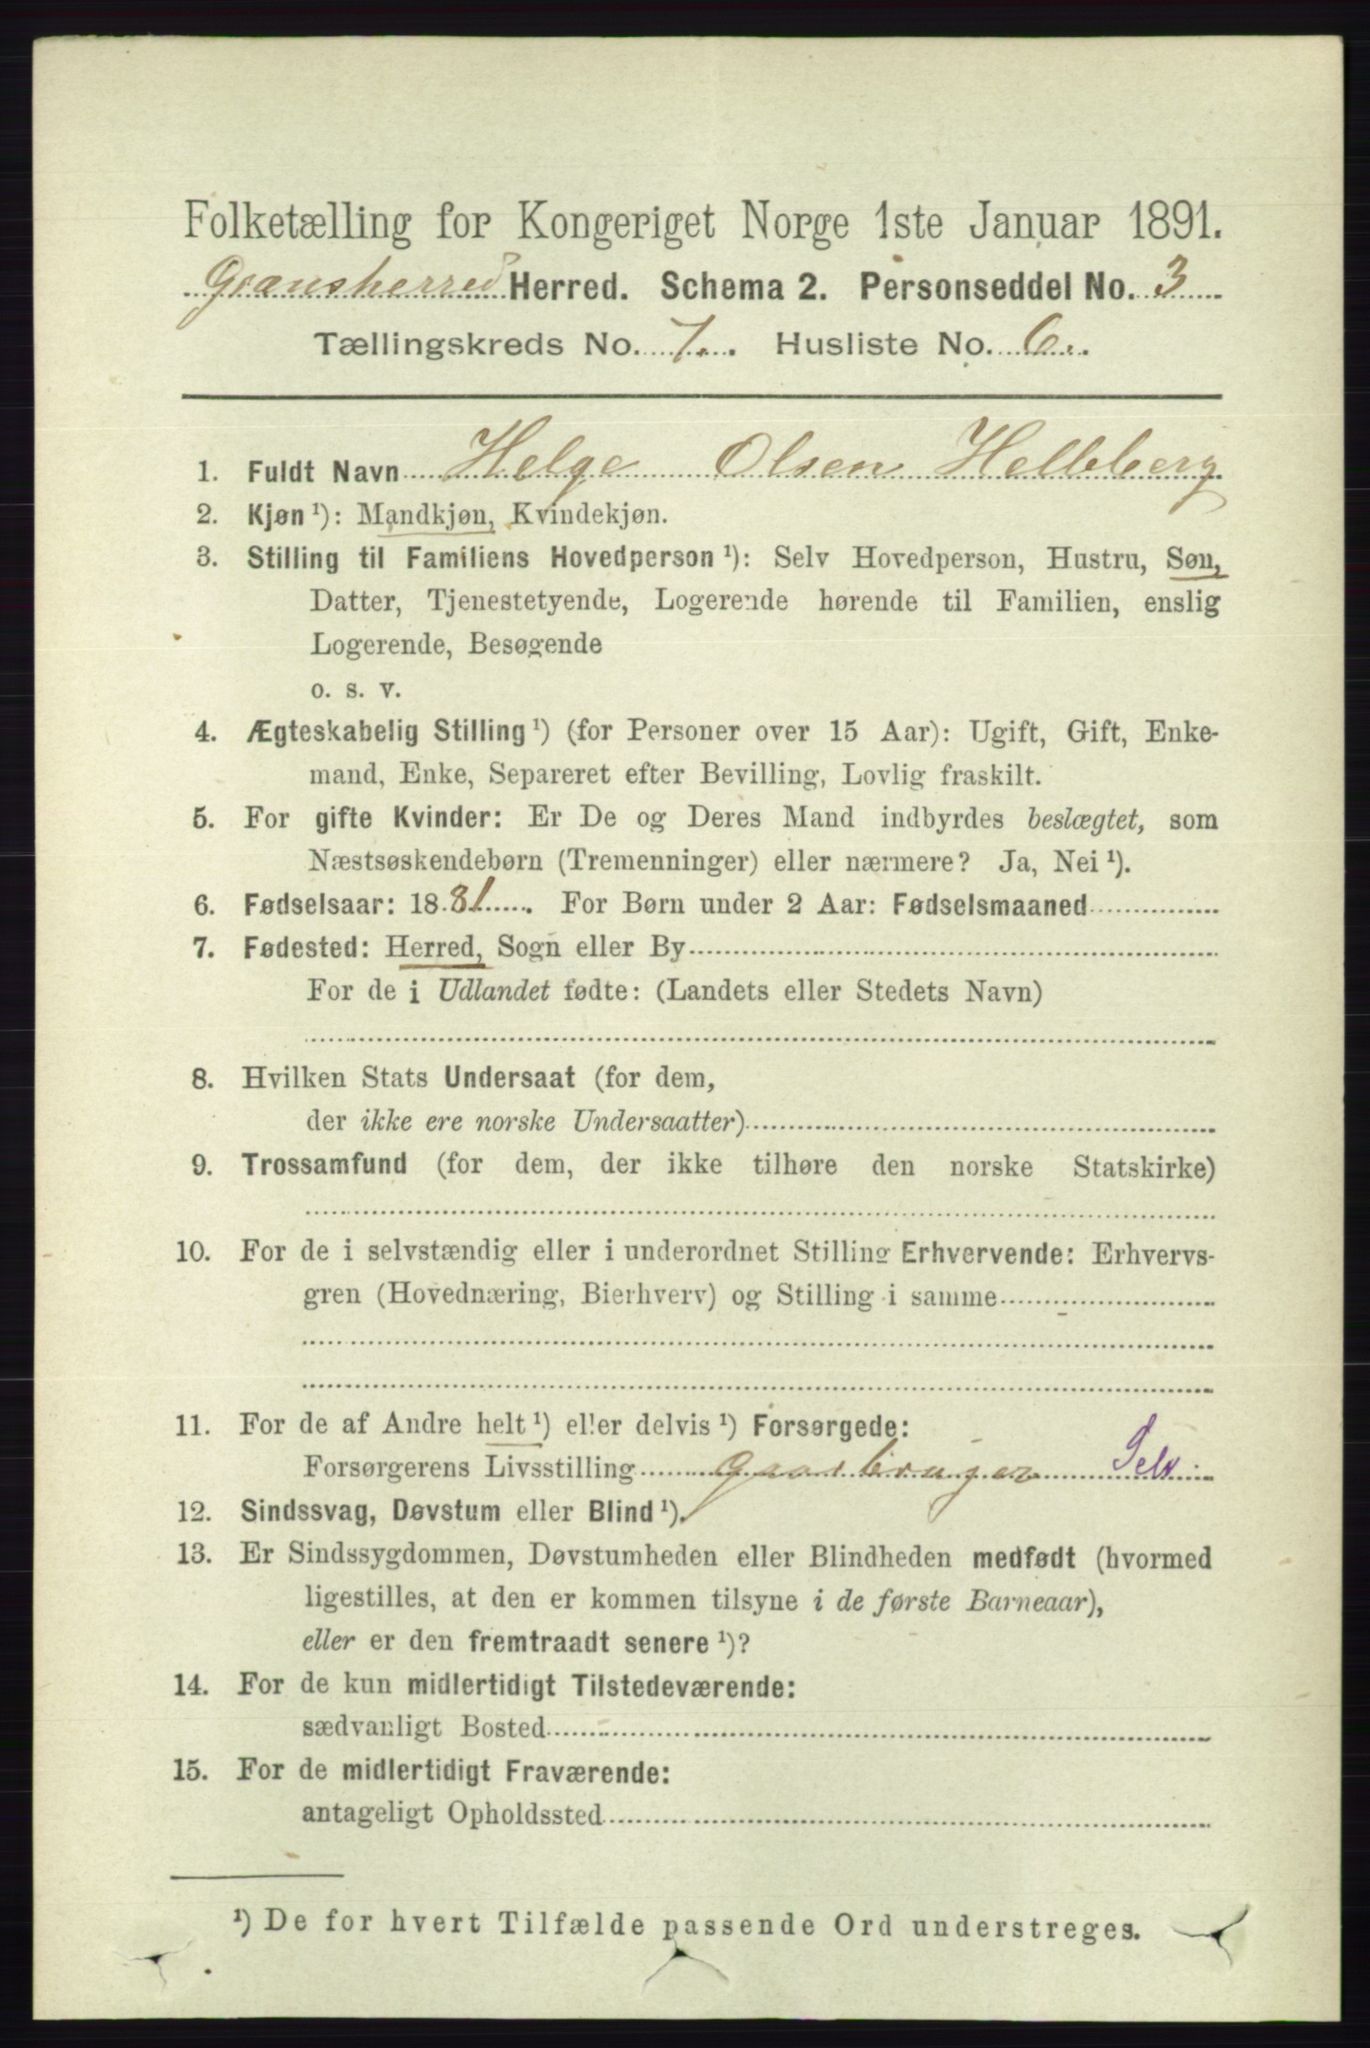 Folketælling for Kongeriget Norge 1ste Januar 1891.
Gransherred Herred. Schema 2. Personseddel No. 3
Tællingskreds No. 7. Husliste No. 6.
1. Fuldt Navn Helge Olsen Helleberg
2. Kjøn ¹): Mandkjøn, Kvindekjøn.
3. Stilling til Familiens Hovedperson ¹): Selv Hovedperson, Hustru, Søn,
Datter, Tjenestetyende, Logerende hørende til Familien, enslig
Logerende, Besøgende
o. s. v.
4. Ægteskabelig Stilling ¹) (for Personer over 15 Aar): Ugift, Gift, Enke-
mand, Enke, Separeret efter Bevilling, Lovlig fraskilt.
5. For gifte Kvinder: Er De og Deres Mand indbyrdes beslægtet, som
Næstsøskendebørn (Tremenninger) eller nærmere? Ja, Nei ¹).
6. Fødselsaar: 1881. For Børn under 2 Aar: Fødselsmaaned
7. Fødested: Herred, Sogn eller By
For de i Udlandet fødte: (Landets eller Stedets Navn)
8. Hvilken Stats Undersaat (for dem,
der ikke ere norske Undersaatter)
9. Trossamfund (for dem, der ikke tilhøre den norske Statskirke)
10. For de i selvstændig eller i underordnet Stilling Erhvervende: Erhvervs-
gren (Hovednæring, Bierhverv) og Stilling i samme
11. For de af Andre helt ¹) eller delvis ¹) Forsørgede:
Forsørgerens Livsstilling Gaarbruger Selv
12. Sindssvag, Døvstum eller Blind ¹).
13. Er Sindssygdommen, Døvstumheden eller Blindheden medfødt (hvormed
ligestilles, at den er kommen tilsyne i de første Barneaar),
eller er den fremtraadt senere ¹)?
14. For de kun midlertidigt Tilstedeværende:
sædvanligt Bosted
15. For de midlertidigt Fraværende:
antageligt Opholdssted
¹) De for hvert Tilfælde passende Ord understreges.